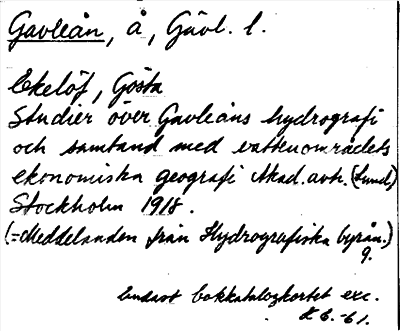 Gavleån, å, Gävl. l.
Ekelöf, Gösta
Studier över Gavleåns hydrografi
och samband med vattenområdets
ekonomiska geografi Akad. avh. (Lund)
Stockholm 1918.
(=Meddelanden från Hydrografiska byrån.)
9.
Endast bokkatalogkortet exc.
K B. -61.